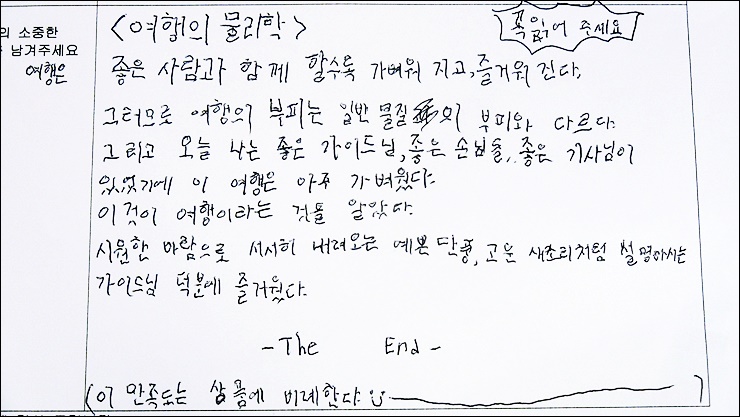 의 소중한
남겨주세요
여행은
<여행의 물리학>
꼭 읽어 주세요
좋은 사람과 함께 할수록 가벼워 지고, 즐거워 진다.
그러므로 여행의 부피는 일반 물질의 부피와 다르다.
그리고 오늘 나는 좋은 가이드님, 좋은 손님들, 좋은 기사님이
있었기에 이 여행은 아주 가벼웠다.
이것이 여행이라는 것을 알았다.
시원한 바람으로 서서히 내려오는 예쁜 단풍, 고운 새소리처럼 설명하시는
가이드님 덕분에 즐거웠다.
- The End -
(이 만족도는 상품에 비례한다